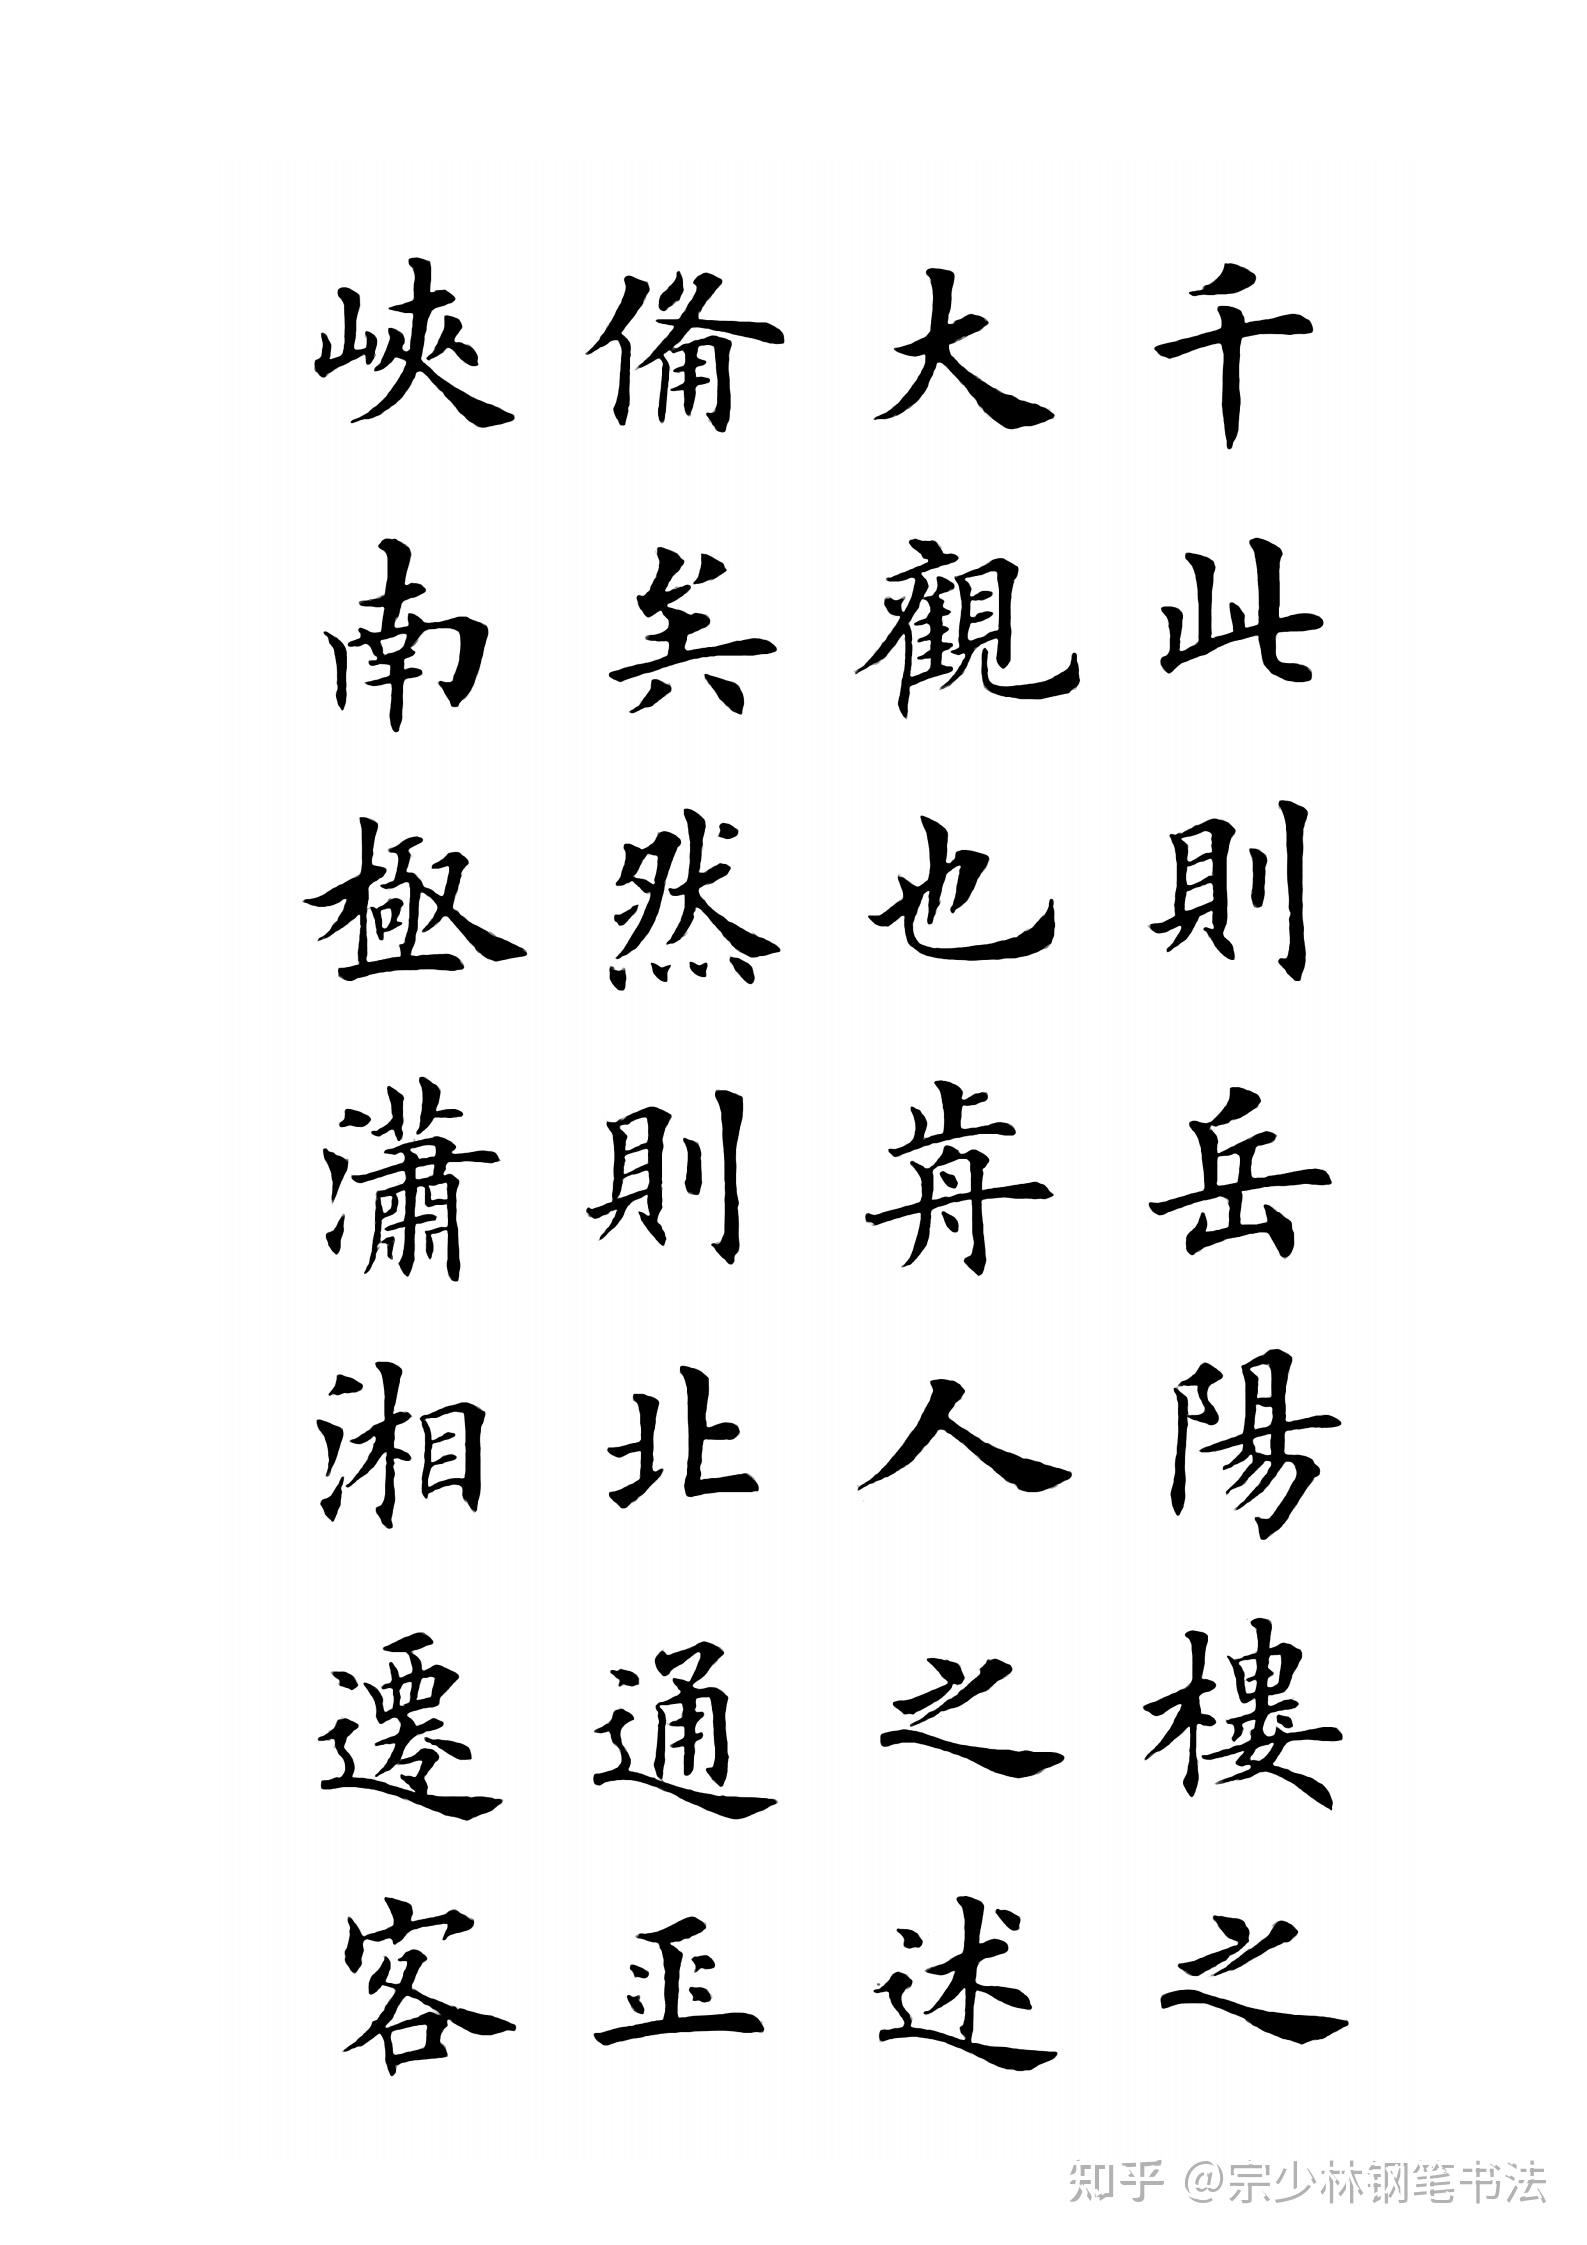 千此則岳陽樓之
大觀也歬人之述
備矣然則北通巫
峽南極瀟湘遷客
知乎 @宗少林钢笔书法